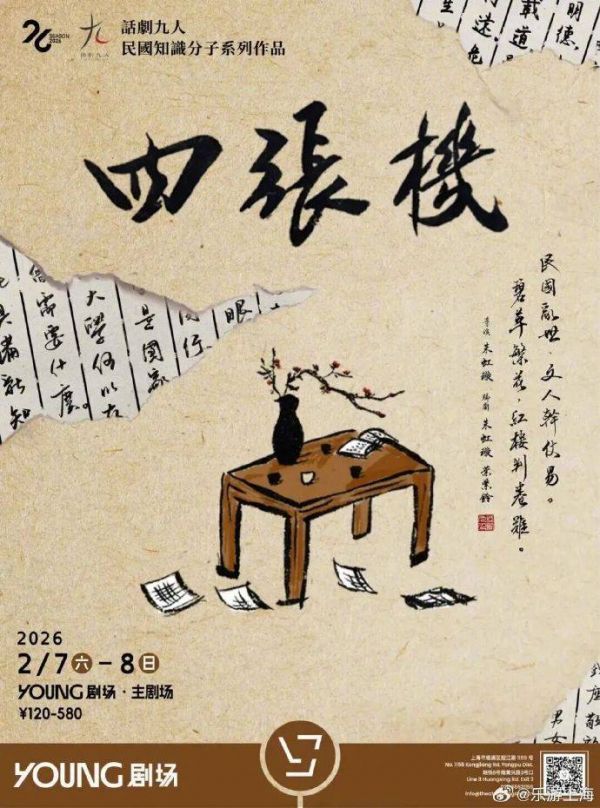 26 SEASON 2026
九
話劇九人
話劇九人
民國知識分子系列作品
四張機
明德
載道
眼
是國
大學何以
需要什麼
具滿
新知
民國亂世，文人幹仗易。
碧草繁花，紅樓判卷難。
導演 朱虹璇 編劇 朱虹璇 榮葉鈴
2026
2/7六-8日
YOUNG剧场·主剧场
¥120-580
YOUNG剧场
上海市杨浦区昆江路1155号
No. 1155 Kongjiang Rd. Yangpu Dist.
Line 8 Huangxing Rd. Exit 3
@乐游上海